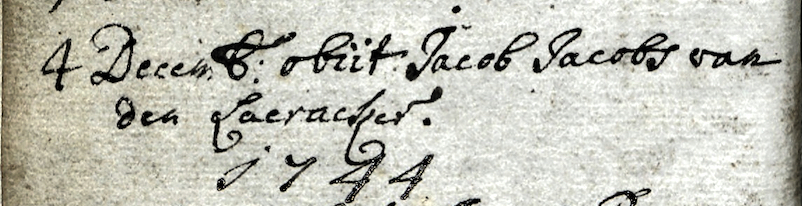 4 Decemb: obiit Jacob Jacobs van
den Laeracker.
1744